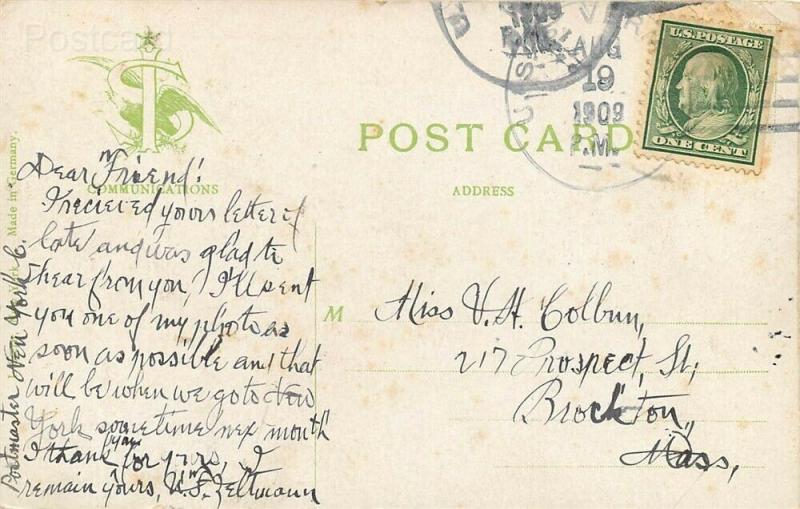 Postcard
1909
AUG
19
1909
P.M.
U.S. POSTAGE
ONE CENT
POST CARD
COMMUNICATIONS
ADDRESS
Made in Germany.
Dear Friend!
I recieved yours letter of
late and was glad to
hear from you, I'll sent
you one of my photos as
soon as possible and that
will be when we go to New
York sometime nex month
I thank you for yours, I
remain yours, W.F. Zeltmann
Postmaster New York C.
M Miss V. H. Colburn,
217 Prospect, St;
Brockton,
Mass,